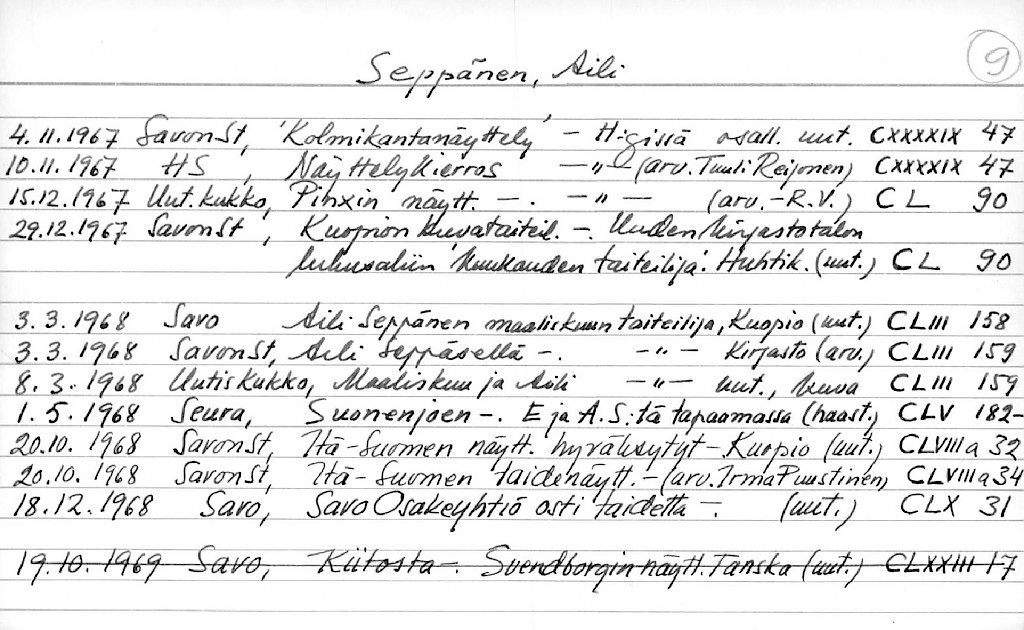 9
Seppänen, Aili
4.11.1967 SavonSt, 'Kolmikantanäyttely' – H:gissä osall. uut. CXXXXIX 47
10.11.1967 HS, Näyttelykierros –"– (arv. Tuuli Reijonen) CXXXXIX 47
15.12.1967 Uut.kukko, Pihxin näytt. –. –"– (arv.–R.V.) CL 90
29.12.1967 SavonSt, Kuopion kuvataiteil. –. Uuden kirjastotalon
lukusaliin 'kuukauden taiteilija'. Huhtik. (uut.) CL 90
3.3.1968 Savo Aili Seppänen maaliskuun taiteilija, Kuopio (uut.) CLIII 158
3.3.1968 SavonSt, Aili Seppäsellä –. –"– Kirjasto (arv.) CLIII 159
8.3.1968 Uutiskukko, Maaliskuu ja Aili –"– uut., kuva CLIII 159
1.5.1968 Seura, Suonenjoen –. E ja A.S:tä tapaamassa (haast.) CLV 182–
20.10.1968 SavonSt, Itä-Suomen näytt. hyväksytyt – Kuopio (uut.) CLVIIIa 32
20.10.1968 SavonSt, Itä-Suomen taidenäytt. – (arv. Irma Puustinen) CLVIIIa 34
18.12.1968 Savo, Savo Osakeyhtiö osti taidetta –. (uut.) CLX 31
19.10.1969 Savo, Kiitosta –. Svendborgin näytt. Tanska (uut.) CLXXIII 17